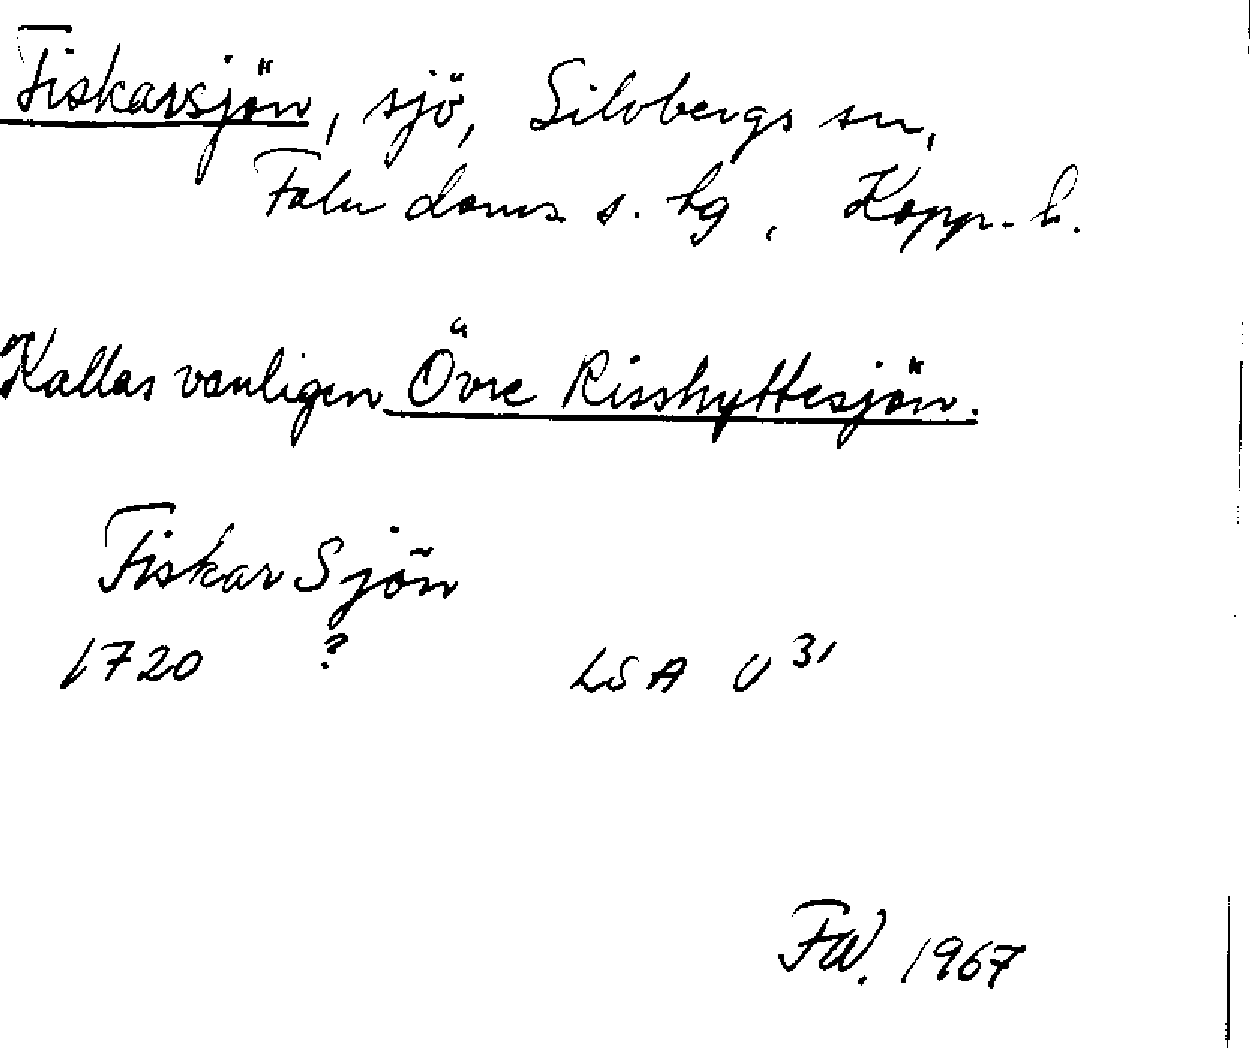 Fiskarsjön, sjö, Silvbergs sn,
Falu doms s. hg, Kopp. l.
Kallas vanligen Övre Risshyttesjön.
Fiskar Sjön
1720 ? LSA U 31
FW. 1967